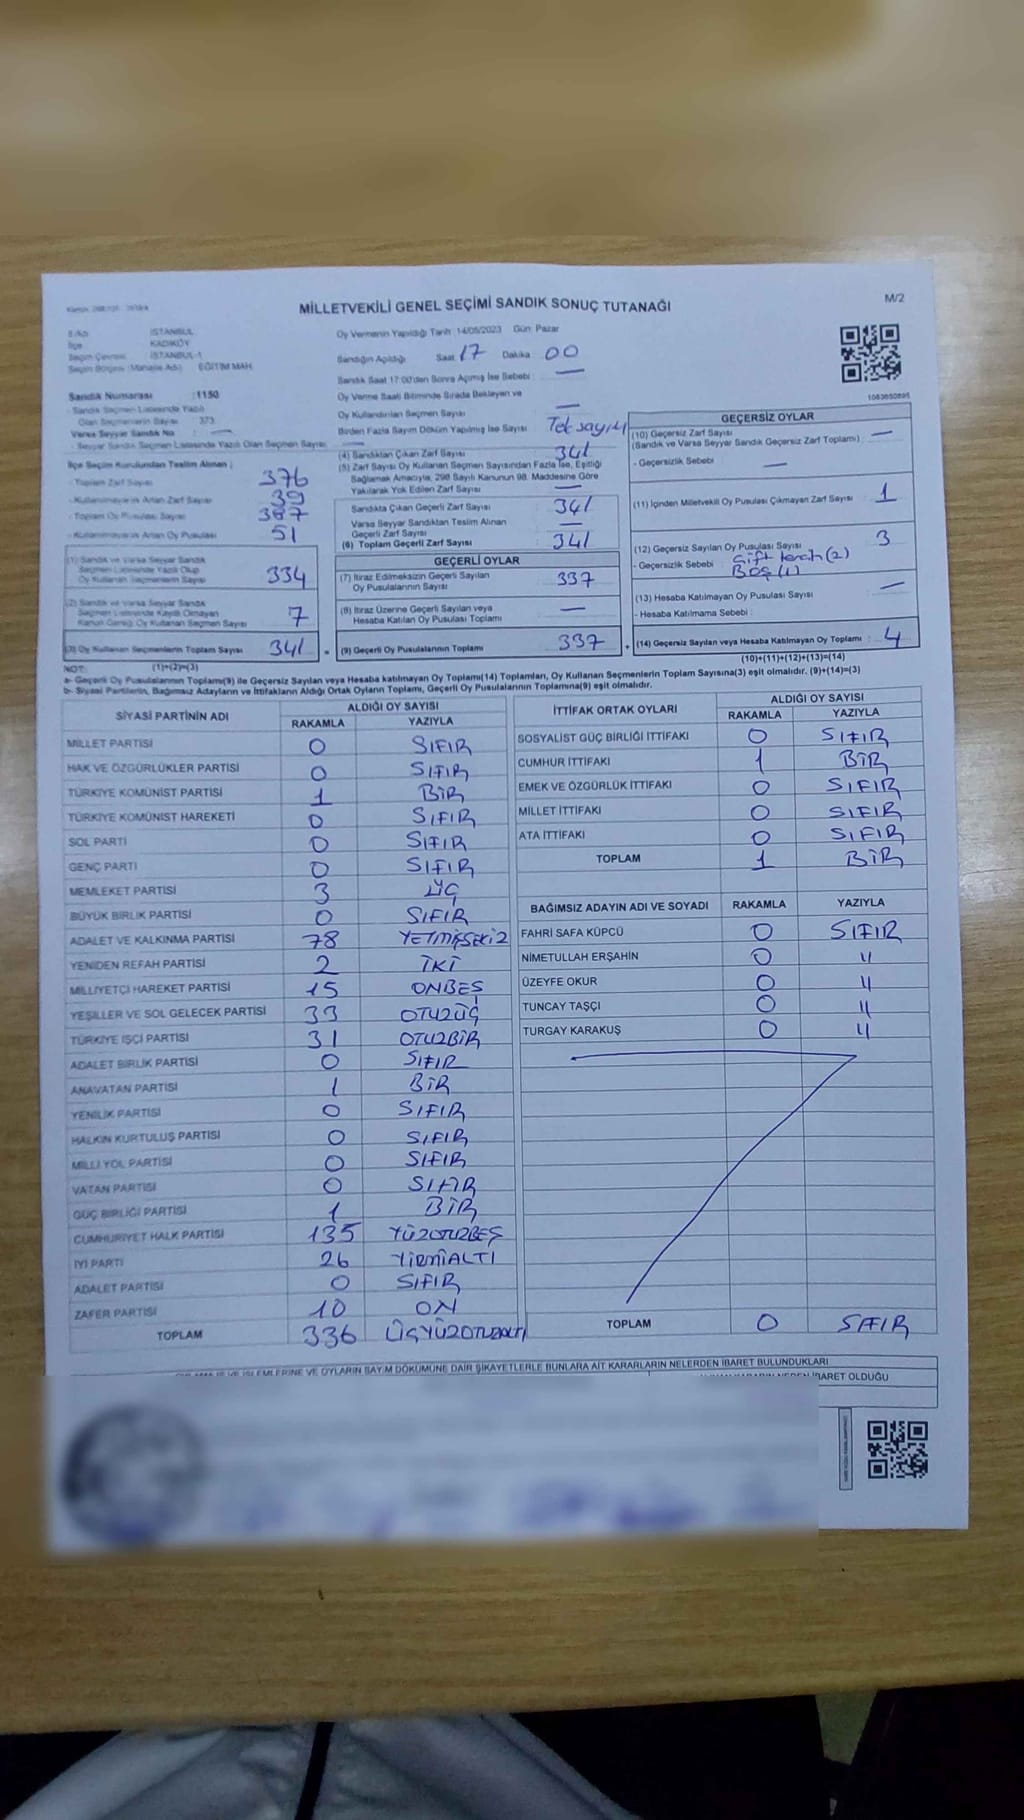 MİLLETVEKİLİ GENEL SEÇİMİ SANDIK SONUÇ TUTANAĞI
M/2
İSTANBUL
İlçe KADIKÖY
Seçim Çevresi İSTANBUL-1
EĞİTİM MAH.
Sandık Numarası :1150
Sandık Seçmen Listesinde Yazılı
Olan Seçmenlerin Sayısı 373
Varsa Seyyar Sandık No : —
- Seyyar Sandık Seçmen Listesinde Yazılı Olan Seçmen Sayısı —
İlçe Seçim Kurulundan Teslim Alınan ;
- Toplam Zarf Sayısı 376
- Kullanılmayarak Artan Zarf Sayısı 39
- Toplam Oy Pusulası Sayısı
- Kullanılmayarak Artan Oy Pusulası 51
(1) Sandık ve Varsa Seyyar Sandık
Seçmen Listesinde Yazılı Olup
Oy Kullanan Seçmenlerin Sayısı 334
(2) Sandık ve Varsa Seyyar Sandık
Seçmen Listesinde Kayıtlı Olmayan
Kanun Gereği Oy Kullanan Seçmen Sayısı 7
(3) Oy Kullanan Seçmenlerin Toplam Sayısı 341
(1)+(2)=(3)
Oy Vermenin Yapıldığı Tarih: 14/05/2023 Gün: Pazar
Sandığın Açıldığı Saat 17 Dakika 00
Sandık Saat 17:00'den Sonra Açılmış İse Sebebi : —
Oy Verme Saati Bitiminde Sırada Bekleyen ve
Oy Kullandırılan Seçmen Sayısı —
Birden Fazla Sayım Döküm Yapılmış İse Sayısı : Tek sayım
(4) Sandıktan Çıkan Zarf Sayısı 341
(5) Zarf Sayısı Oy Kullanan Seçmen Sayısından Fazla İse, Eşitliği
Sağlamak Amacıyla, 298 Sayılı Kanunun 98. Maddesine Göre
Yakılarak Yok Edilen Zarf Sayısı —
Sandıkta Çıkan Geçerli Zarf Sayısı : 341
Varsa Seyyar Sandıktan Teslim Alınan
Geçerli Zarf Sayısı —
(6) Toplam Geçerli Zarf Sayısı : 341
GEÇERLİ OYLAR
(7) İtiraz Edilmeksizin Geçerli Sayılan
Oy Pusulalarının Sayısı : 337
(8) İtiraz Üzerine Geçerli Sayılan veya
Hesaba Katılan Oy Pusulası Toplamı : —
(9) Geçerli Oy Pusulalarının Toplamı : 337
GEÇERSİZ OYLAR
(10) Geçersiz Zarf Sayısı : —
(Sandık ve Varsa Seyyar Sandık Geçersiz Zarf Toplamı)
- Geçersizlik Sebebi : —
(11) İçinden Milletvekili Oy Pusulası Çıkmayan Zarf Sayısı : 1
(12) Geçersiz Sayılan Oy Pusulası Sayısı : 3
- Geçersizlik Sebebi : Çift tercih (2)
Boş (1)
(13) Hesaba Katılmayan Oy Pusulası Sayısı : —
- Hesaba Katılmama Sebebi :
(14) Geçersiz Sayılan veya Hesaba Katılmayan Oy Toplamı : 4
(10)+(11)+(12)+(13)=(14)
NOT:
a- Geçerli Oy Pusulalarının Toplamı(9) ile Geçersiz Sayılan veya Hesaba katılmayan Oy Toplamı(14) Toplamları, Oy Kullanan Seçmenlerin Toplam Sayısına(3) eşit olmalıdır. (9)+(14)=(3)
b- Siyasi Partilerin, Bağımsız Adayların ve İttifakların Aldığı Ortak Oyların Toplamı, Geçerli Oy Pusulalarının Toplamına(9) eşit olmalıdır.
SİYASİ PARTİNİN ADI ALDIĞI OY SAYISI
RAKAMLA YAZIYLA
MİLLET PARTİSİ 0 SIFIR
HAK VE ÖZGÜRLÜKLER PARTİSİ 0 SIFIR
TÜRKİYE KOMÜNİST PARTİSİ 1 BİR
TÜRKİYE KOMÜNİST HAREKETİ 0 SIFIR
SOL PARTİ 0 SIFIR
GENÇ PARTİ 0 SIFIR
MEMLEKET PARTİSİ 3 ÜÇ
BÜYÜK BİRLİK PARTİSİ 0 SIFIR
ADALET VE KALKINMA PARTİSİ 78 YETMİŞSEKİZ
YENİDEN REFAH PARTİSİ 2 İKİ
MİLLİYETÇİ HAREKET PARTİSİ 15 ONBEŞ
YEŞİLLER VE SOL GELECEK PARTİSİ 33 OTUZÜÇ
TÜRKİYE İŞÇİ PARTİSİ 31 OTUZBİR
ADALET BİRLİK PARTİSİ 0 SIFIR
ANAVATAN PARTİSİ 1 BİR
YENİLİK PARTİSİ 0 SIFIR
HALKIN KURTULUŞ PARTİSİ 0 SIFIR
MİLLİ YOL PARTİSİ 0 SIFIR
VATAN PARTİSİ 0 SIFIR
GÜÇ BİRLİĞİ PARTİSİ 1 BİR
CUMHURİYET HALK PARTİSİ 135 YÜZOTUZBEŞ
İYİ PARTİ 26 YİRMİALTI
ADALET PARTİSİ 0 SIFIR
ZAFER PARTİSİ 10 ON
TOPLAM 336 ÜÇYÜZOTUZALTI
İTTİFAK ORTAK OYLARI ALDIĞI OY SAYISI
RAKAMLA YAZIYLA
SOSYALİST GÜÇ BİRLİĞİ İTTİFAKI 0 SIFIR
CUMHUR İTTİFAKI 1 BİR
EMEK VE ÖZGÜRLÜK İTTİFAKI 0 SIFIR
MİLLET İTTİFAKI 0 SIFIR
ATA İTTİFAKI 0 SIFIR
TOPLAM 1 BİR
BAĞIMSIZ ADAYIN ADI VE SOYADI RAKAMLA YAZIYLA
FAHRİ SAFA KÜPCÜ 0 SIFIR
NİMETULLAH ERŞAHİN 0 "
ÜZEYFE OKUR 0 "
TUNCAY TAŞÇI 0 "
TURGAY KARAKUŞ 0 "
TOPLAM 0 SIFIR
OYLARIN SAYIM DÖKÜMÜNE DAİR ŞİKAYETLERLE BUNLARA AİT KARARLARIN NELERDEN İBARET BULUNDUKLARI
İBARET OLDUĞU